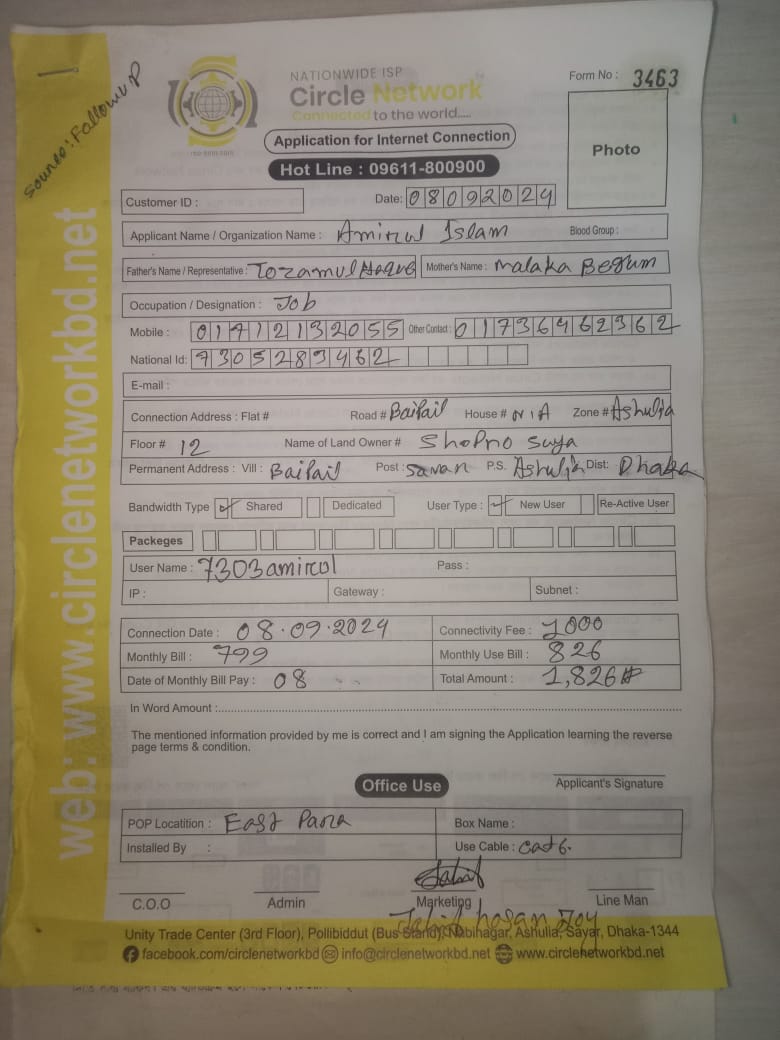 Source: Follow up
NATIONWIDE ISP
Circle Network
Connected to the world.....
Form No : 3463
Application for Internet Connection
Hot Line : 09611-800900
Photo
Customer ID :
Date: 08092024
Applicant Name / Organization Name : Amirul Islam Blood Group :
Father's Name / Representative : Tozamul Haque Mother's Name : Malaka Begum
Occupation / Designation : Job
Mobile : 01712132055 Other Contact : 01736462362
National Id: 7305283462
E-mail :
Connection Address : Flat # Road # Baipail House # N/A Zone # Ashulia
Floor # 12 Name of Land Owner # Shopno
Permanent Address : Vill : Baipail Post : Savar P.S. Ashulia Dist: Dhaka
Bandwidth Type Shared Dedicated User Type : New User Re-Active User
Packeges
User Name : 7303amirul Pass :
IP : Gateway : Subnet :
Connection Date : 08.09.2024 Connectivity Fee : 1000
Monthly Bill : 799 Monthly Use Bill : 826
Date of Monthly Bill Pay : 08 Total Amount : 1,826
In Word Amount :
The mentioned information provided by me is correct and I am signing the Application learning the reverse
page terms & condition.
Office Use
Applicant's Signature
POP Locatition : East Para Box Name :
Installed By : Use Cable : cat6.
C.O.O Admin Marketing Line Man
hasan Joy
Unity Trade Center (3rd Floor), Pollibiddut (Bus Stand), Nabinagar, Ashulia, Savar, Dhaka-1344
facebook.com/circlenetworkbd info@circlenetworkbd.net www.circlenetworkbd.net
web: www.circlenetworkbd.net